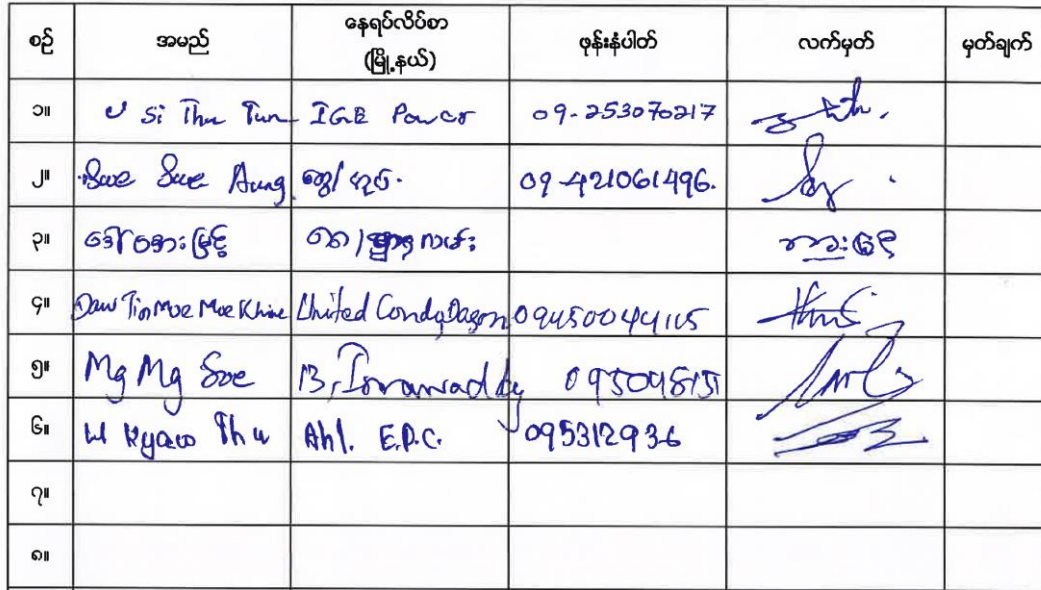 စဉ် အမည် နေရပ်လိပ်စာ (မြို့နယ်) ဖုန်းနံပါတ် လက်မှတ် မှတ်ချက်
၁။ U Si Thu Tun IGE Power 09-253070217
၂။ Swe Swe Aung 09-421061496.
၃။ ဒေါ်အေးမြင့်
၄။ Daw Tin Moe Moe Khine United Condo, Dagon 09450044115
၅။ Mg Mg Soe 13, Irrawaddy 095048151
၆။ U Kyaw Thu Ahl. E.P.C. 095312936
၇။
၈။